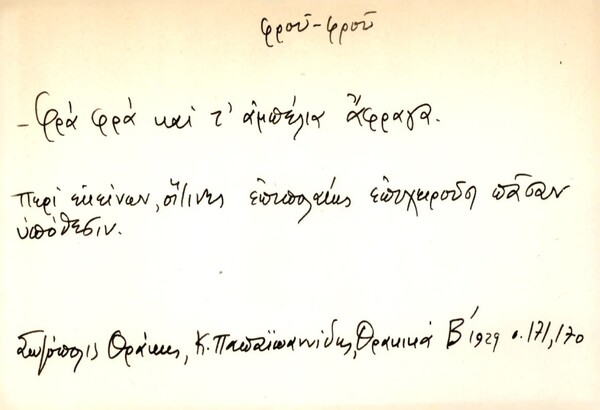 φρού-φρού
- Φρά φρά καί τ' ἀμπέλια ἄφραγα.
Περί ἐκείνων, οἵτινες ἐπιπολαίως ἐπιχειροῦσι πᾶσαν
ὑπόθεσιν.
Σωζόπολις Θράκης, Κ. Παπαϊωαννίδης, Θρακικά Β΄ 1929 σ. 171, 170